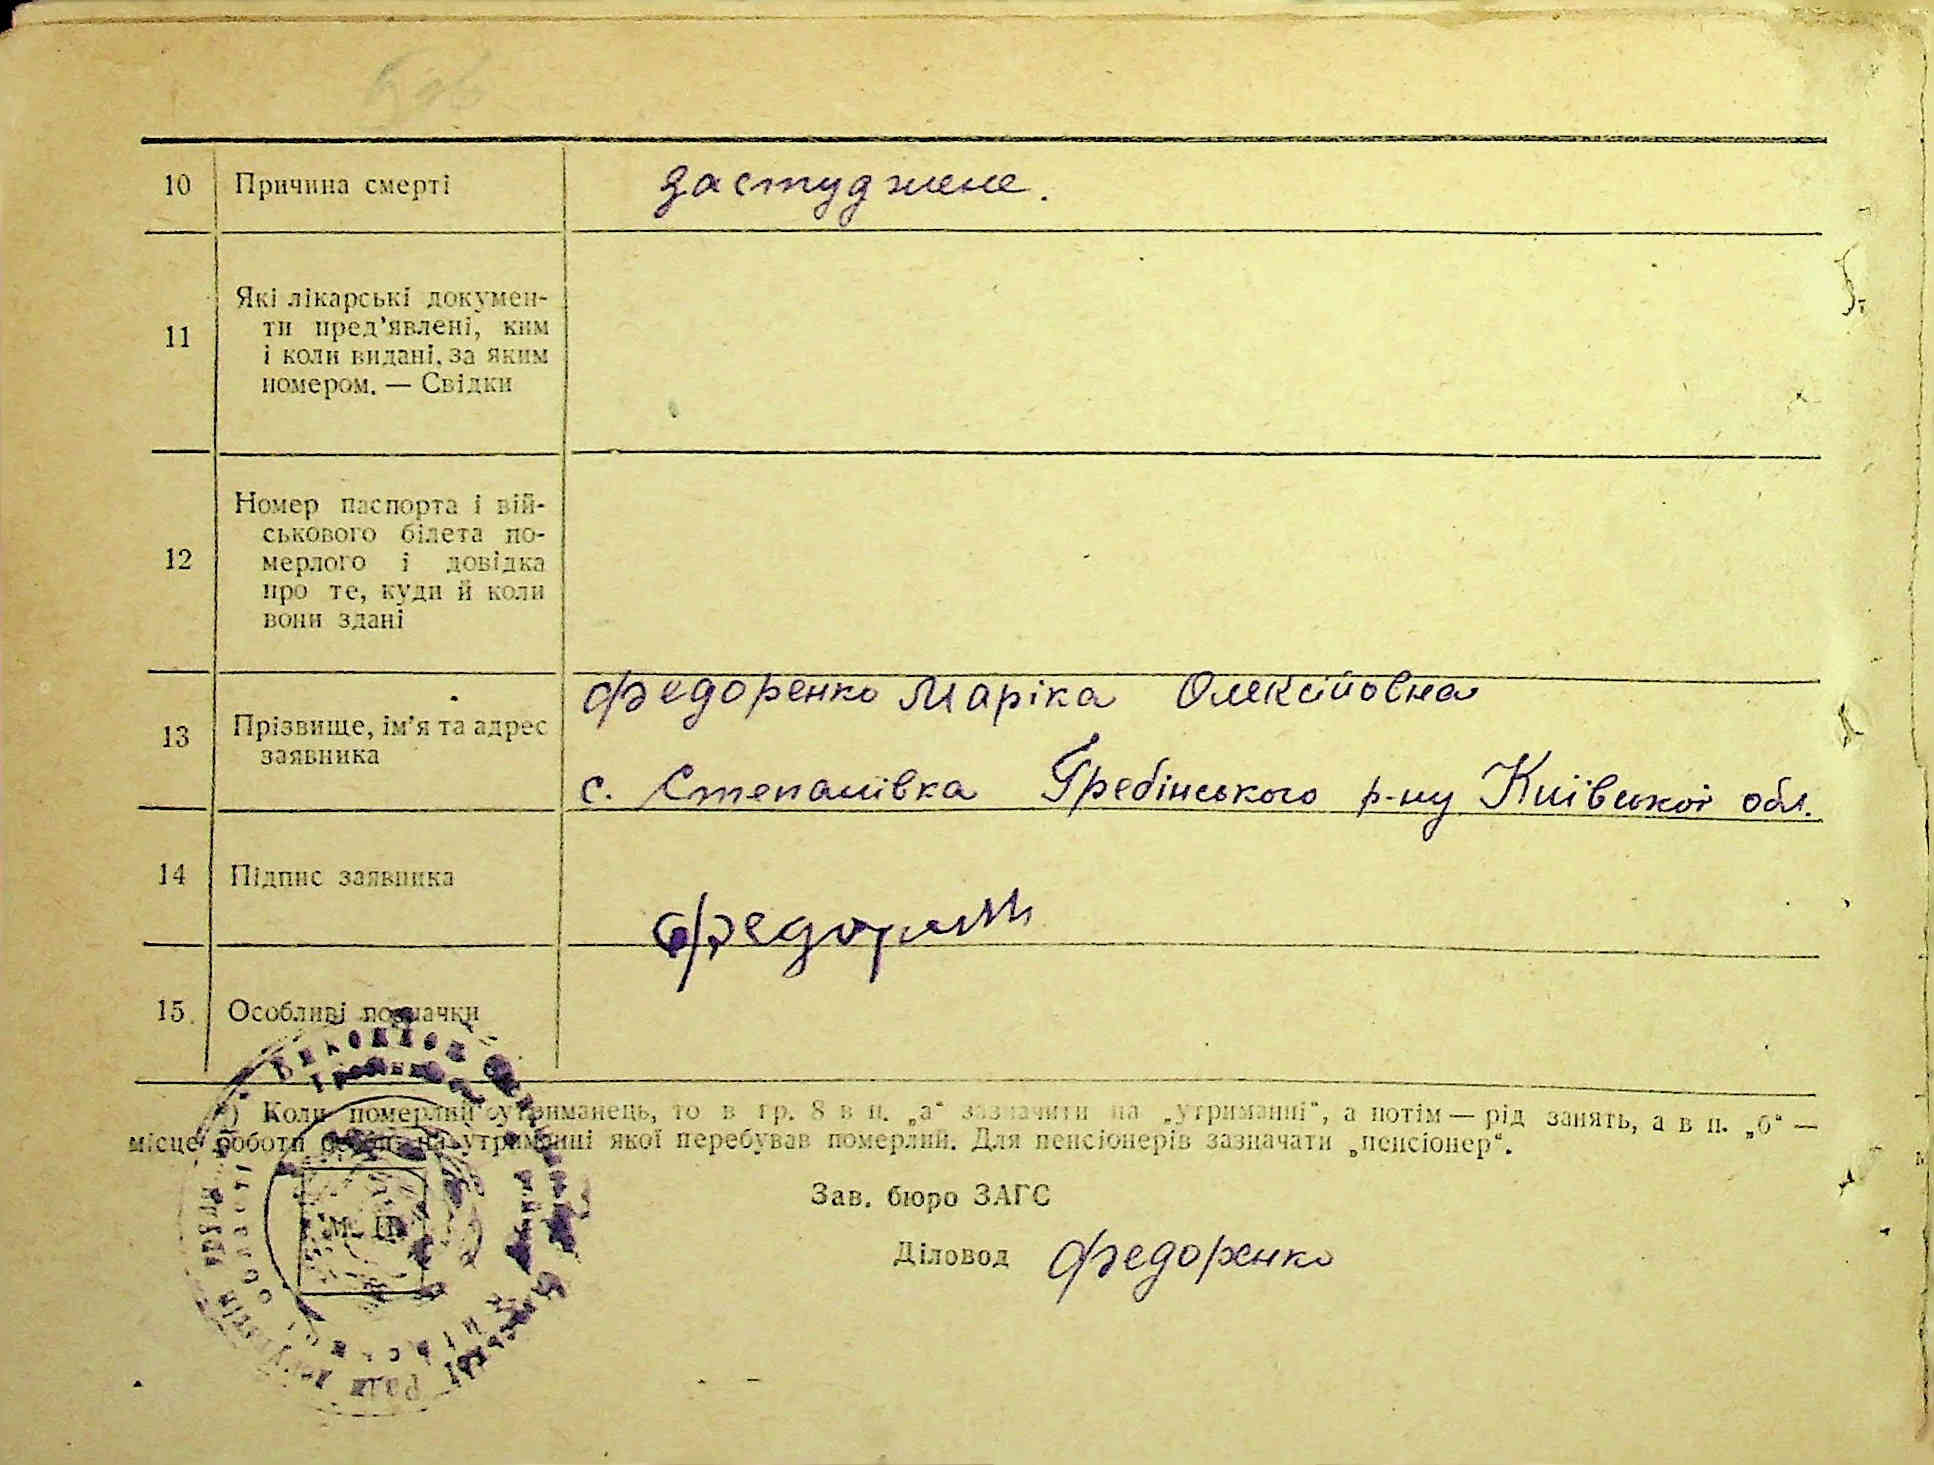 10 Причина смерті застуджене.
11 Які лікарські докумен-
ти пред'явлені, ким
і коли видані, за яким
номером. — Свідки
12 Номер паспорта і вій-
ськового білета по-
мерлого і довідка
про те, куди й коли
вони здані
13 Прізвище, ім'я та адрес
заявника
Федоренко Маріка Олексіївна
с. Степанівка Гребінського р-ну Київської обл.
14 Підпис заявника
15. Особливі позначки
Коли померлий утриманець, то в гр. 8 в п. „а“ зазначити на „утриманні“, а потім — рід занять, а в п. „б“ —
місце роботи особи, на утриманні якої перебував померлий. Для пенсіонерів зазначати „пенсіонер“.
Зав. бюро ЗАГС
Діловод Федоренко
М. П.